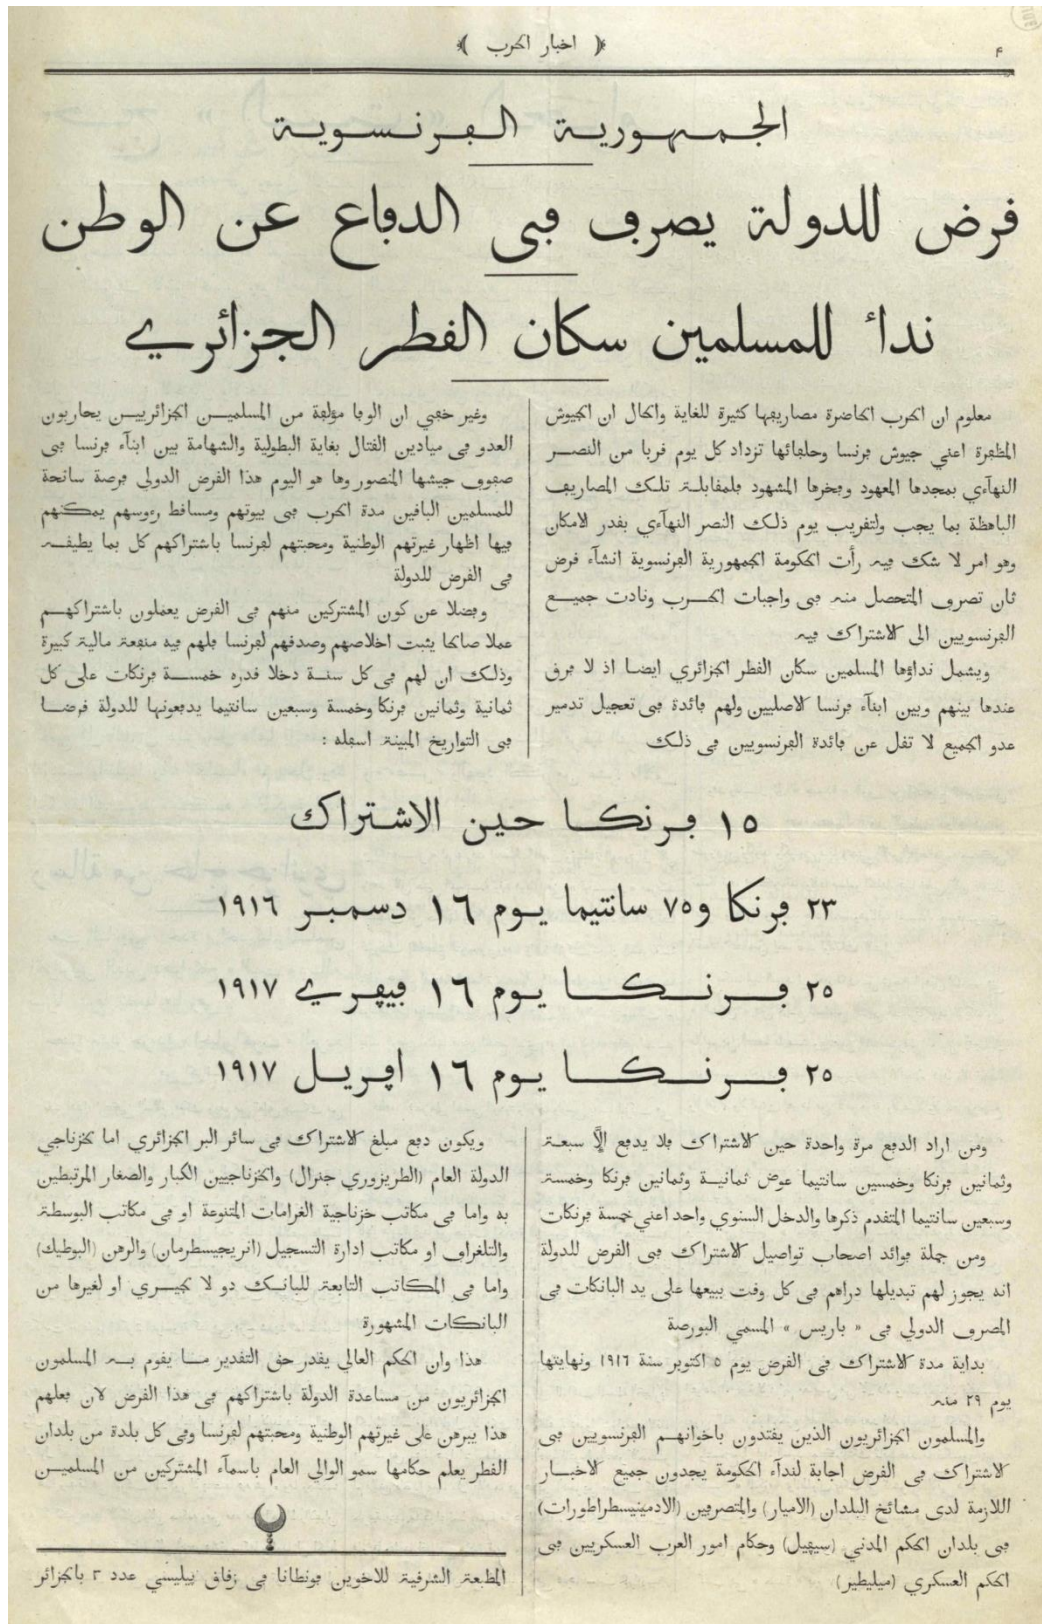 ﴿ اخبار الحرب ﴾
٤
الجمهورية الفرنسوية
قرض للدولة يصرف في الدفاع عن الوطن
نداء للمسلمين سكان القطر الجزائري
معلوم ان الحرب الحاضرة مصاريفها كثيرة للغاية والحال ان الجيوش
المظفرة اعني جيوش فرنسا وحلفائها تزداد كل يوم قربا من النصر
النهآءي بمجدها المعهود وفخرها المشهود فلمقابلة تلك المصاريف
الباهظة بما يجب ولتقريب يوم ذلك النصر النهآءي بقدر الامكان
وهو امر لا شك فيه رأت الحكومة الجمهورية الفرنسوية انشآء قرض
ثان تصرف المتحصل منه في واجبات الحرب ونادت جميع
الفرنسويين الى الاشتراك فيه
ويشمل نداؤها المسلمين سكان القطر الجزائري ايضا اذ لا فرق
عندها بينهم وبين ابنآء فرنسا الاصليين ولهم فائدة في تعجيل تدمير
عدو الجميع لا تقل عن فائدة الفرنسويين في ذلك
وغير خفي ان الوفا مؤلفة من المسلمين الجزائريين يحاربون
العدو في ميادين القتال بغاية البطولية والشهامة بين ابنآء فرنسا في
صفوف جيشها المنصور وها هو اليوم هذا القرض الدولي فرصة سانحة
للمسلمين الباقين مدة الحرب في بيوتهم ومساقط رءوسهم يمكنهم
فيها اظهار غيرتهم الوطنية ومحبتهم لفرنسا باشتراكهم كل بما يطيقه
في القرض للدولة
وفضلا عن كون المشتركين منهم في القرض يعملون باشتراكهم
عملا صالحا يثبت اخلاصهم وصدقهم لفرنسا فلهم فيه منفعة مالية كبيرة
وذلك ان لهم في كل سنة دخلا قدره خمسة فرنكات على كل
ثمانية وثمانين فرنكا وخمسة وسبعين سانتيما يدفعونها للدولة قرضا
في التواريخ المبينة اسفله :
١٥ فرنكا حين الاشتراك
٢٣ فرنكا و٧٥ سانتيما يوم ١٦ دسمبر ١٩١٦
٢٥ فرنكا يوم ١٦ فيڥري ١٩١٧
٢٥ فرنكا يوم ١٦ اپريل ١٩١٧
ومن اراد الدفع مرة واحدة حين الاشتراك فلا يدفع إلَّا سبعة
وثمانين فرنكا وخمسين سانتيما عوض ثمانية وثمانين فرنكا وخمسة
وسبعين سانتيما المتقدم ذكرها والدخل السنوي واحد اعني خمسة فرنكات
ومن جملة فوائد اصحاب تواصيل الاشتراك في القرض للدولة
انه يجوز لهم تبديلها دراهم في كل وقت ببيعها على يد البانكات في
المصرف الدولي في « باريس » المسمي البورصة
بداية مدة الاشتراك في القرض يوم ٥ اكتوبر سنة ١٩١٦ ونهايتها
يوم ٢٩ منه
والمسلمون الجزائريون الذين يقتدون باخوانهم الفرنسويين في
الاشتراك في القرض اجابة لندآء الحكومة يجدون جميع الاخبار
اللازمة لدى مشائخ البلدان (الاميار) والمتصرفين (الادمينيسطراطورات)
في بلدان الحكم المدني (سيڥيل) وحكام امور العرب العسكريين في
الحكم العسكري (ميليطير)
ويكون دفع مبلغ الاشتراك في سائر البر الجزائري اما لخزناجي
الدولة العام (الطريزوري جنرال) والخزناجيين الكبار والصغار المرتبطين
به واما في مكاتب خزناجية الغرامات المتنوعة او في مكاتب البوسطة
والتلغراف او مكاتب ادارة التسجيل (انريجيسطرمان) والرهن (البوطيك)
واما في المكاتب التابعة للبانك دو لا لجيري او لغيرها من
البانكات المشهورة
هذا وان الحكم العالي يقدر حق التقدير ما يقوم به المسلمون
الجزائريون من مساعدة الدولة باشتراكهم في هذا القرض لان فعلهم
هذا يبرهن على غيرتهم الوطنية ومحبتهم لفرنسا وفي كل بلدة من بلدان
القطر يعلم حكامها سمو الوالي العام باسمآء المشتركين من المسلمين
المطبعة الشرقية للاخوين فونطانا في زقاق پيليسي عدد ٣ بالجزائر